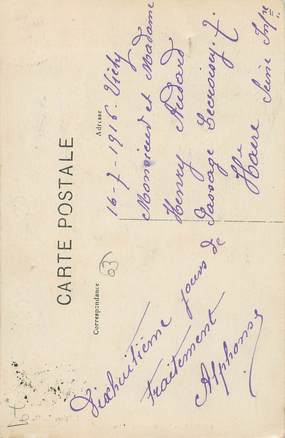 CARTE POSTALE
Correspondance
Adresse
16-7-1916. Vichy
Monsieur et Madame
Henry Audard
Passage 7.
Havre Seine Infre
Dixhuitième jours de
traitement
Alphonse
03